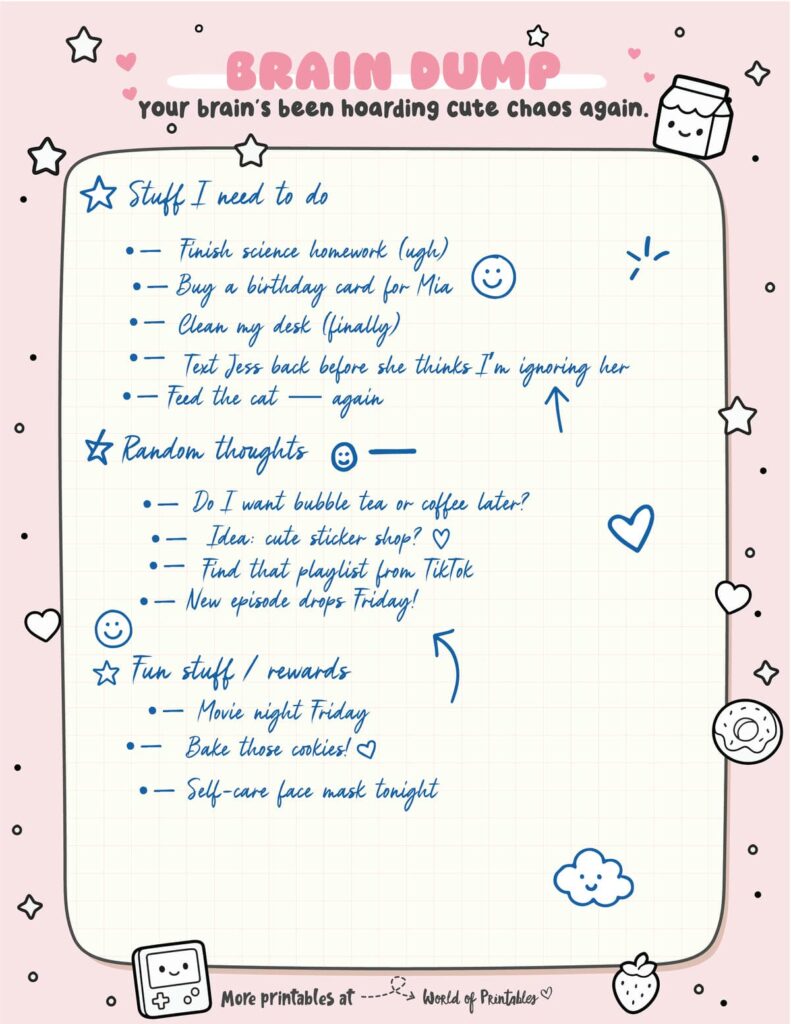 BRAIN DUMP
Your brain's been hoarding cute chaos again.
Stuff I need to do
• — Finish science homework (ugh)
• — Buy a birthday card for Mia
• — Clean my desk (finally)
• — Text Jess back before she thinks I'm ignoring her
• — Feed the cat — again
Random thoughts —
• — Do I want bubble tea or coffee later?
• — Idea: cute sticker shop? ♡
• — Find that playlist from TikTok
• — New episode drops Friday!
Fun stuff / rewards
• — Movie night Friday
• — Bake those cookies! ♡
• — Self-care face mask tonight
More printables at World of Printables ♡